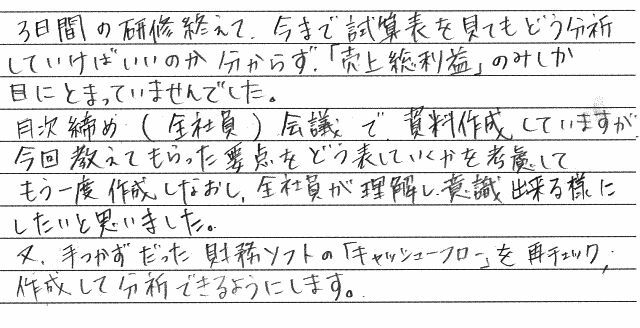 3日間の研修終えて、今まで試算表を見てもどう分析
していけばいいのか分からず、「売上総利益」のみしか
目にとまっていませんでした。
月次締め(全社員)会議で、資料作成していますが
今回教えてもらった要点をどう表していくかを考慮して
もう一度作成しなおし、全社員が理解し、意識出来る様に
したいと思いました。
又、手つかずだった財務ソフトの「キャッシュフロー」を再チェック、
作成して分析できるようにします。